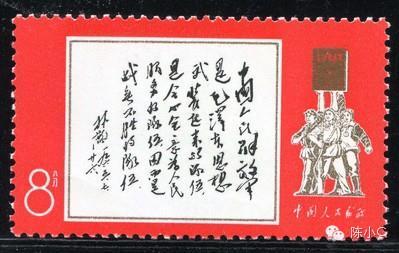 中国人民解放军
是毛泽东思想
武装起来的队伍
是全心全意为人民
服务的队伍因而是
战无不胜的队伍
林彪
8分
中国人民邮政
陈小C